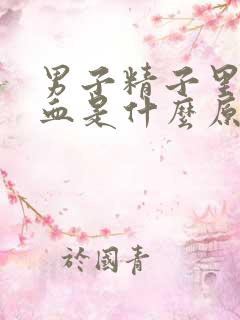 男子精子里
血是什麼原
於國青